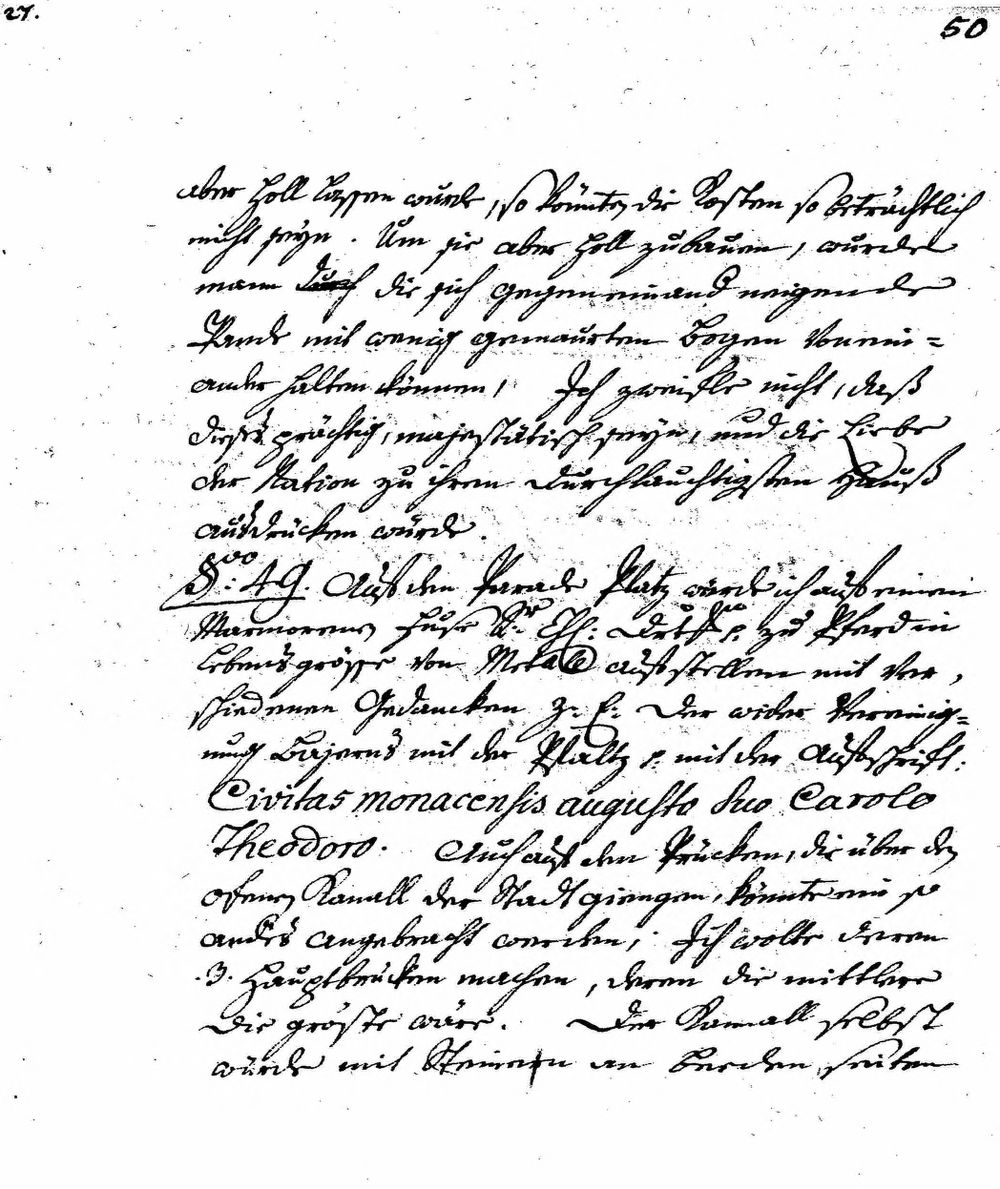 27.
50
aber holl lassen wurde, so könnten die Kosten so beträchtlich
nicht seyn. Um sie aber holl zubauen, wurde
mann durch die sich gegeneinand neigende
Wände mit wenig gemaurten bogen vonein=
ander halten können, Ich zweifle nicht, daß
dieses prächtig, majestätisch seyn, und die Liebe
der Nation zu ihren durchlauchtigsten Hauß
ausdrücken würde.
§: 49. Auf den Parade Platz würde ich auf einem
Marmorenen Fuse Sr. Chf: zu Pferd in
Lebensgrösse von Metall aufstellen mit ver,
schiedenen Gedancken z. E: der wider Vereinig=
nung Bajerns mit der Pfaltz mit der Aufschrift:
Civitas monacensis augusto suo Carolo
Theodoro. Auch auf den Prücken, die über den
ofenen Kanall der Stadt giengen, könnte ein so
andes angebracht werden; Ich wolte deren
.3. Hauptbrücken machen, deren die mittlere
die gröste wäre. Der Kanall selbst
würde mit Steinern an beeden seiten